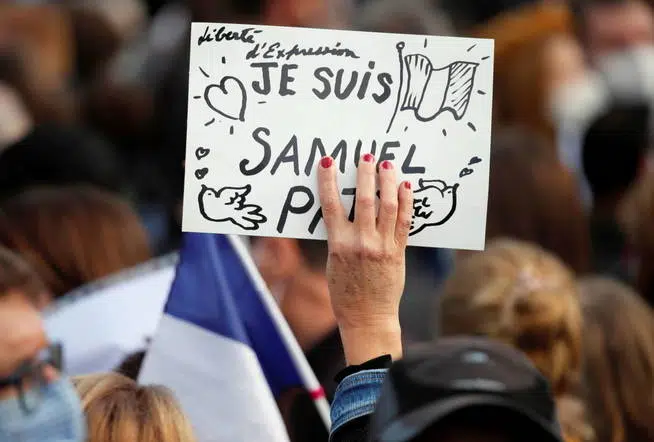 Liberté
d'Expression
JE SUIS
SAMUEL